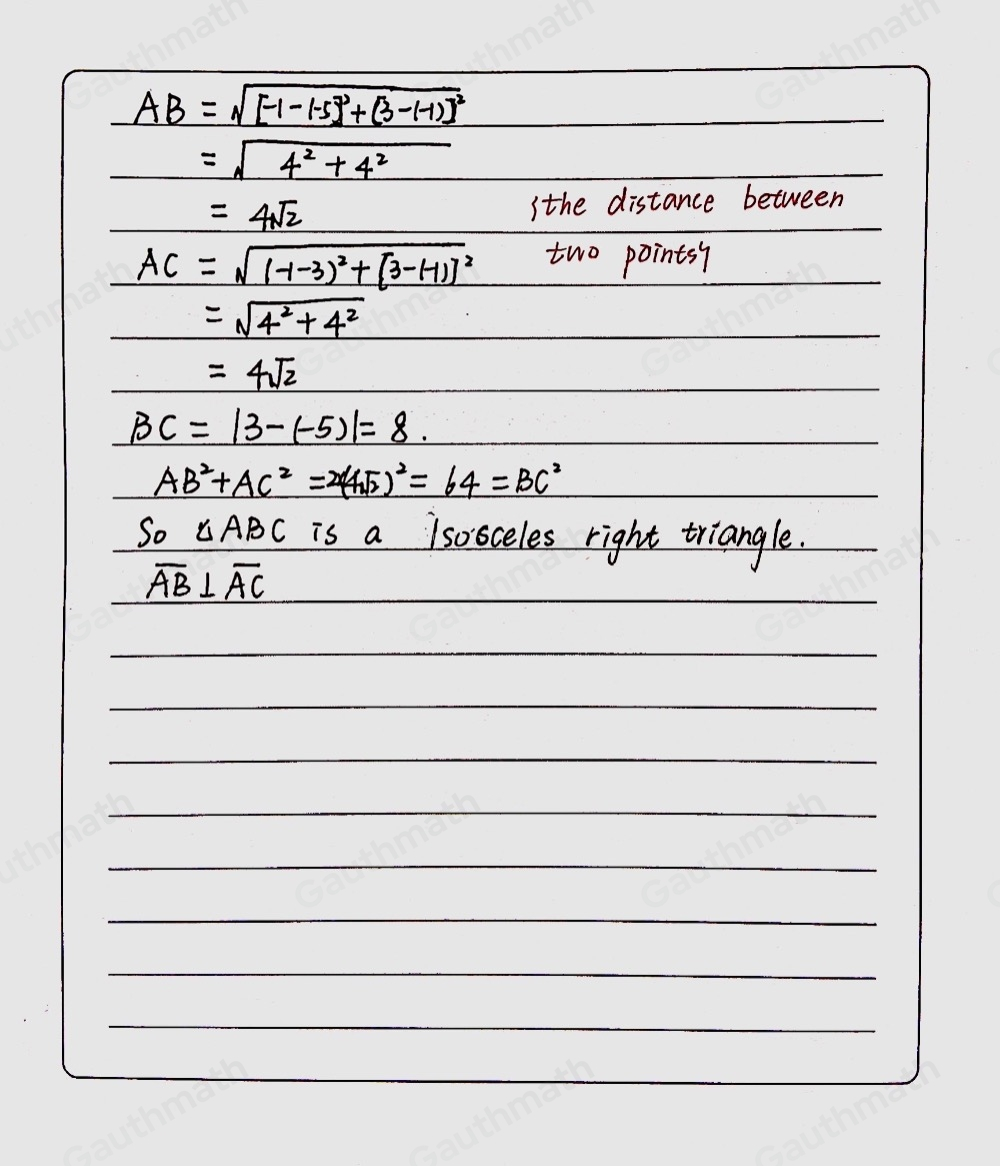 AB = √[-1-(-5)]²+[3-(-1)]²
= √4²+4²
= 4√2 {the distance between
two points}
AC = √(-1-3)²+[3-(-1)]²
= √4²+4²
= 4√2
BC = |3-(-5)|= 8.
AB²+AC² =2×(4√2)²= 64 = BC²
So △ABC is a Isosceles right triangle.
A̅B̅ ⊥ A̅C̅
Gauthmath